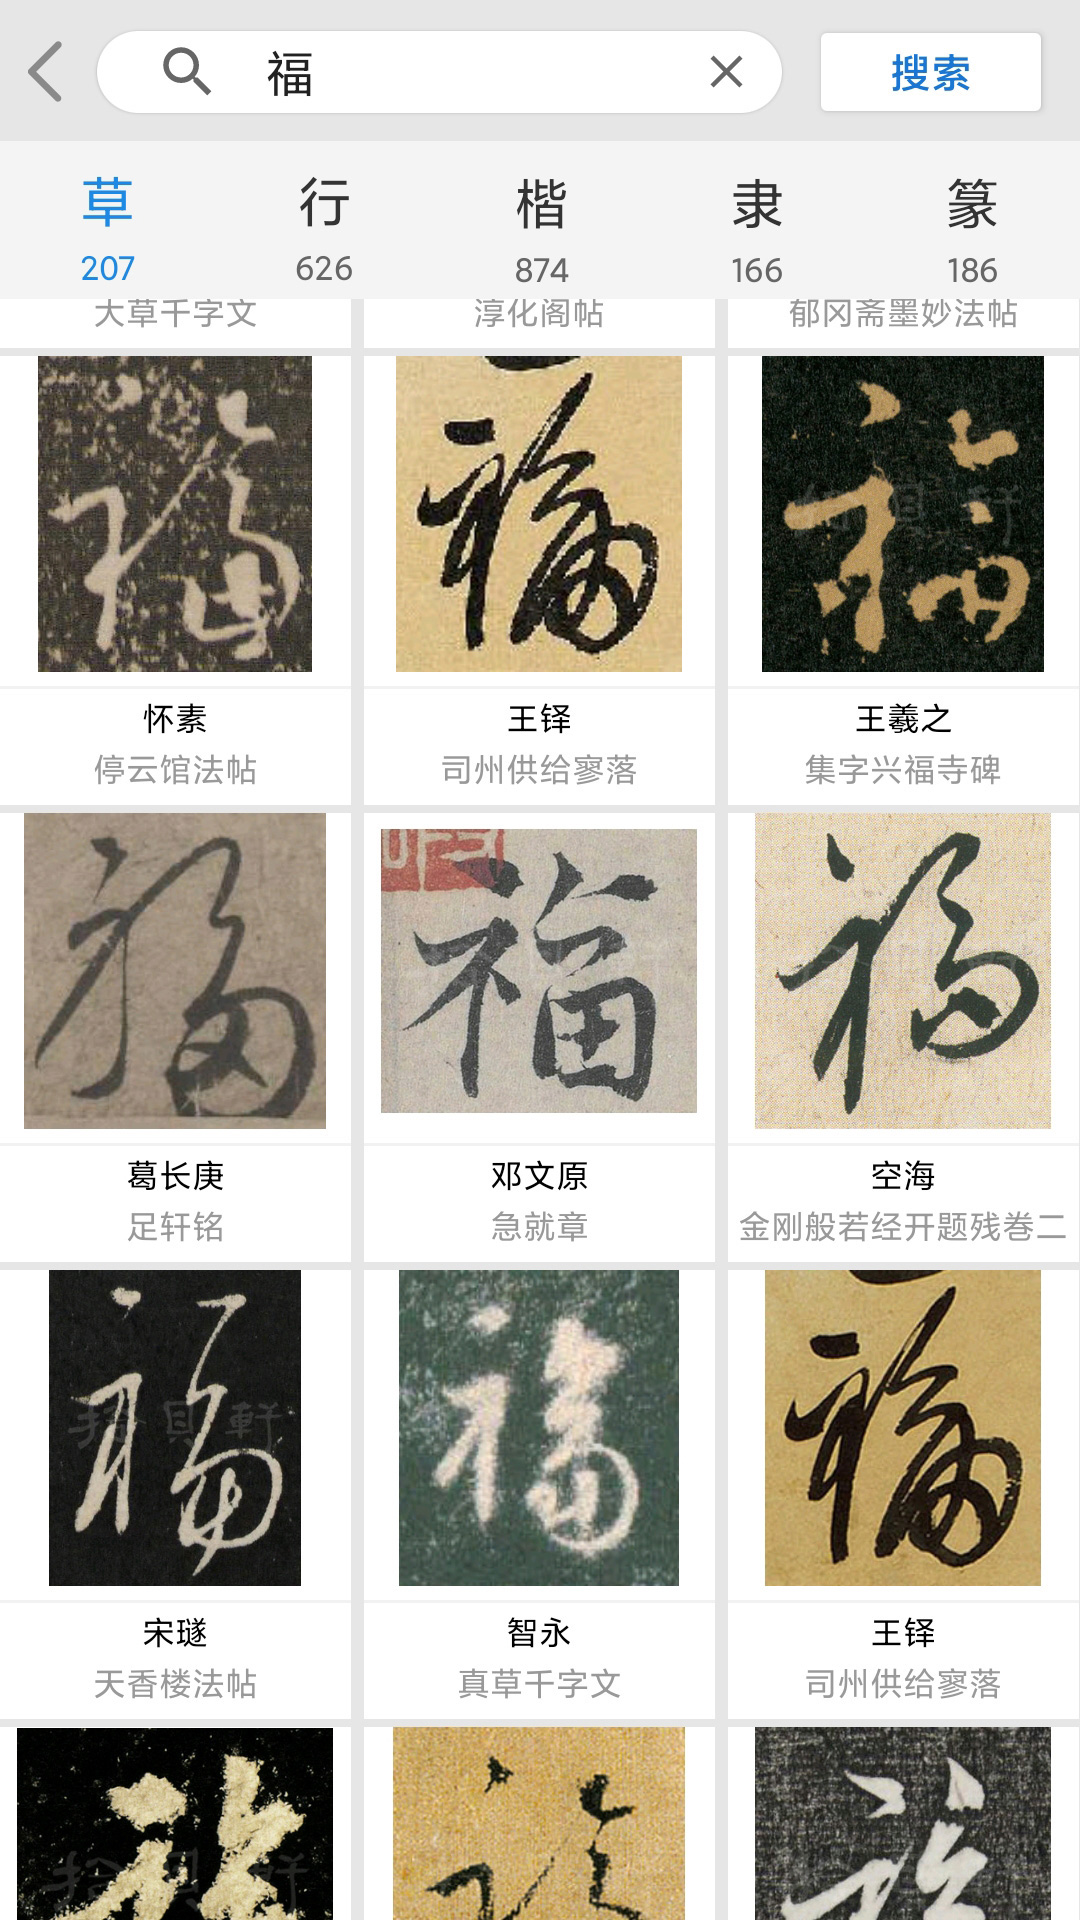 福
搜索
草 行 楷 隶 篆
207 626 874 166 186
大草千字文 淳化阁帖 郁冈斋墨妙法帖
福 福 福
怀素 王铎 王羲之
停云馆法帖 司州供给寥落 集字兴福寺碑
福 福 福
葛长庚 邓文原 空海
足轩铭 急就章 金刚般若经开题残卷二
福 福 福
拾貝軒
宋璲 智永 王铎
天香楼法帖 真草千字文 司州供给寥落
拾貝軒